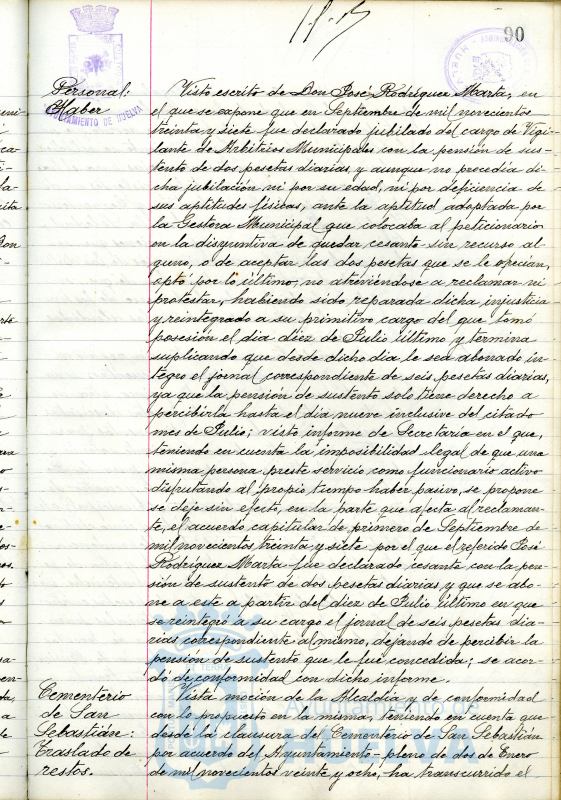 90
Personal:
Haber
AYUNTAMIENTO DE HUELVA
Visto escrito de Don José Rodríguez Marta, en
el que se expone que en Septiembre de mil novecientos
treinta y siete fue declarado jubilado del cargo de Vigi-
lante de Arbitrios Municipales con la pensión de sus-
tento de dos pesetas diarias, y aunque no procedía di-
cha jubilación ni por su edad, ni por deficiencia de
sus aptitudes físicas, ante la aptitud adoptada por
la Gestora Municipal que colocaba al peticionario
en la disyuntiva de quedar cesante sin recurso al-
guno, o de aceptar las dos pesetas que se le ofrecían,
optó por lo último, no atreviéndose a reclamar ni
protestar, habiendo sido reparada dicha injusticia
y reintegrado a su primitivo cargo del que tomó
posesión el día diez de Julio último y termina
suplicando que desde dicho día le sea abonado ín-
tegro el jornal correspondiente de seis pesetas diarias,
ya que la pensión de sustento solo tiene derecho a
percibirla hasta el día nueve inclusive del citado
mes de Julio; visto informe de Secretaría en el que,
teniendo en cuenta la imposibilidad legal de que una
misma persona preste servicio como funcionario activo
disfrutando al propio tiempo haber pasivo, se propone
se deje sin efecto, en la parte que afecta al reclaman-
te, el acuerdo capitular de primero de Septiembre de
mil novecientos treinta y siete por el que el referido José
Rodríguez Marta fue declarado cesante con la pen-
sión de sustento de dos pesetas diarias y que se abo-
ne a este a partir del diez de Julio último en que
se reintegró a su cargo el jornal de seis pesetas dia-
rias correspondiente al mismo, dejando de percibir la
pensión de sustento que le fue concedida; se acor-
dó de conformidad con dicho informe.
Cementerio
de San
Sebastián:
Traslado de
restos.
Vista moción de la Alcaldía y de conformidad
con lo propuesto en la misma, teniendo en cuenta que
desde la clausura del Cementerio de San Sebastián
por acuerdo del Ayuntamiento-pleno de dos de Enero
de mil novecientos veinte y ocho, ha transcurrido el
Ayuntamiento de
HUELVA